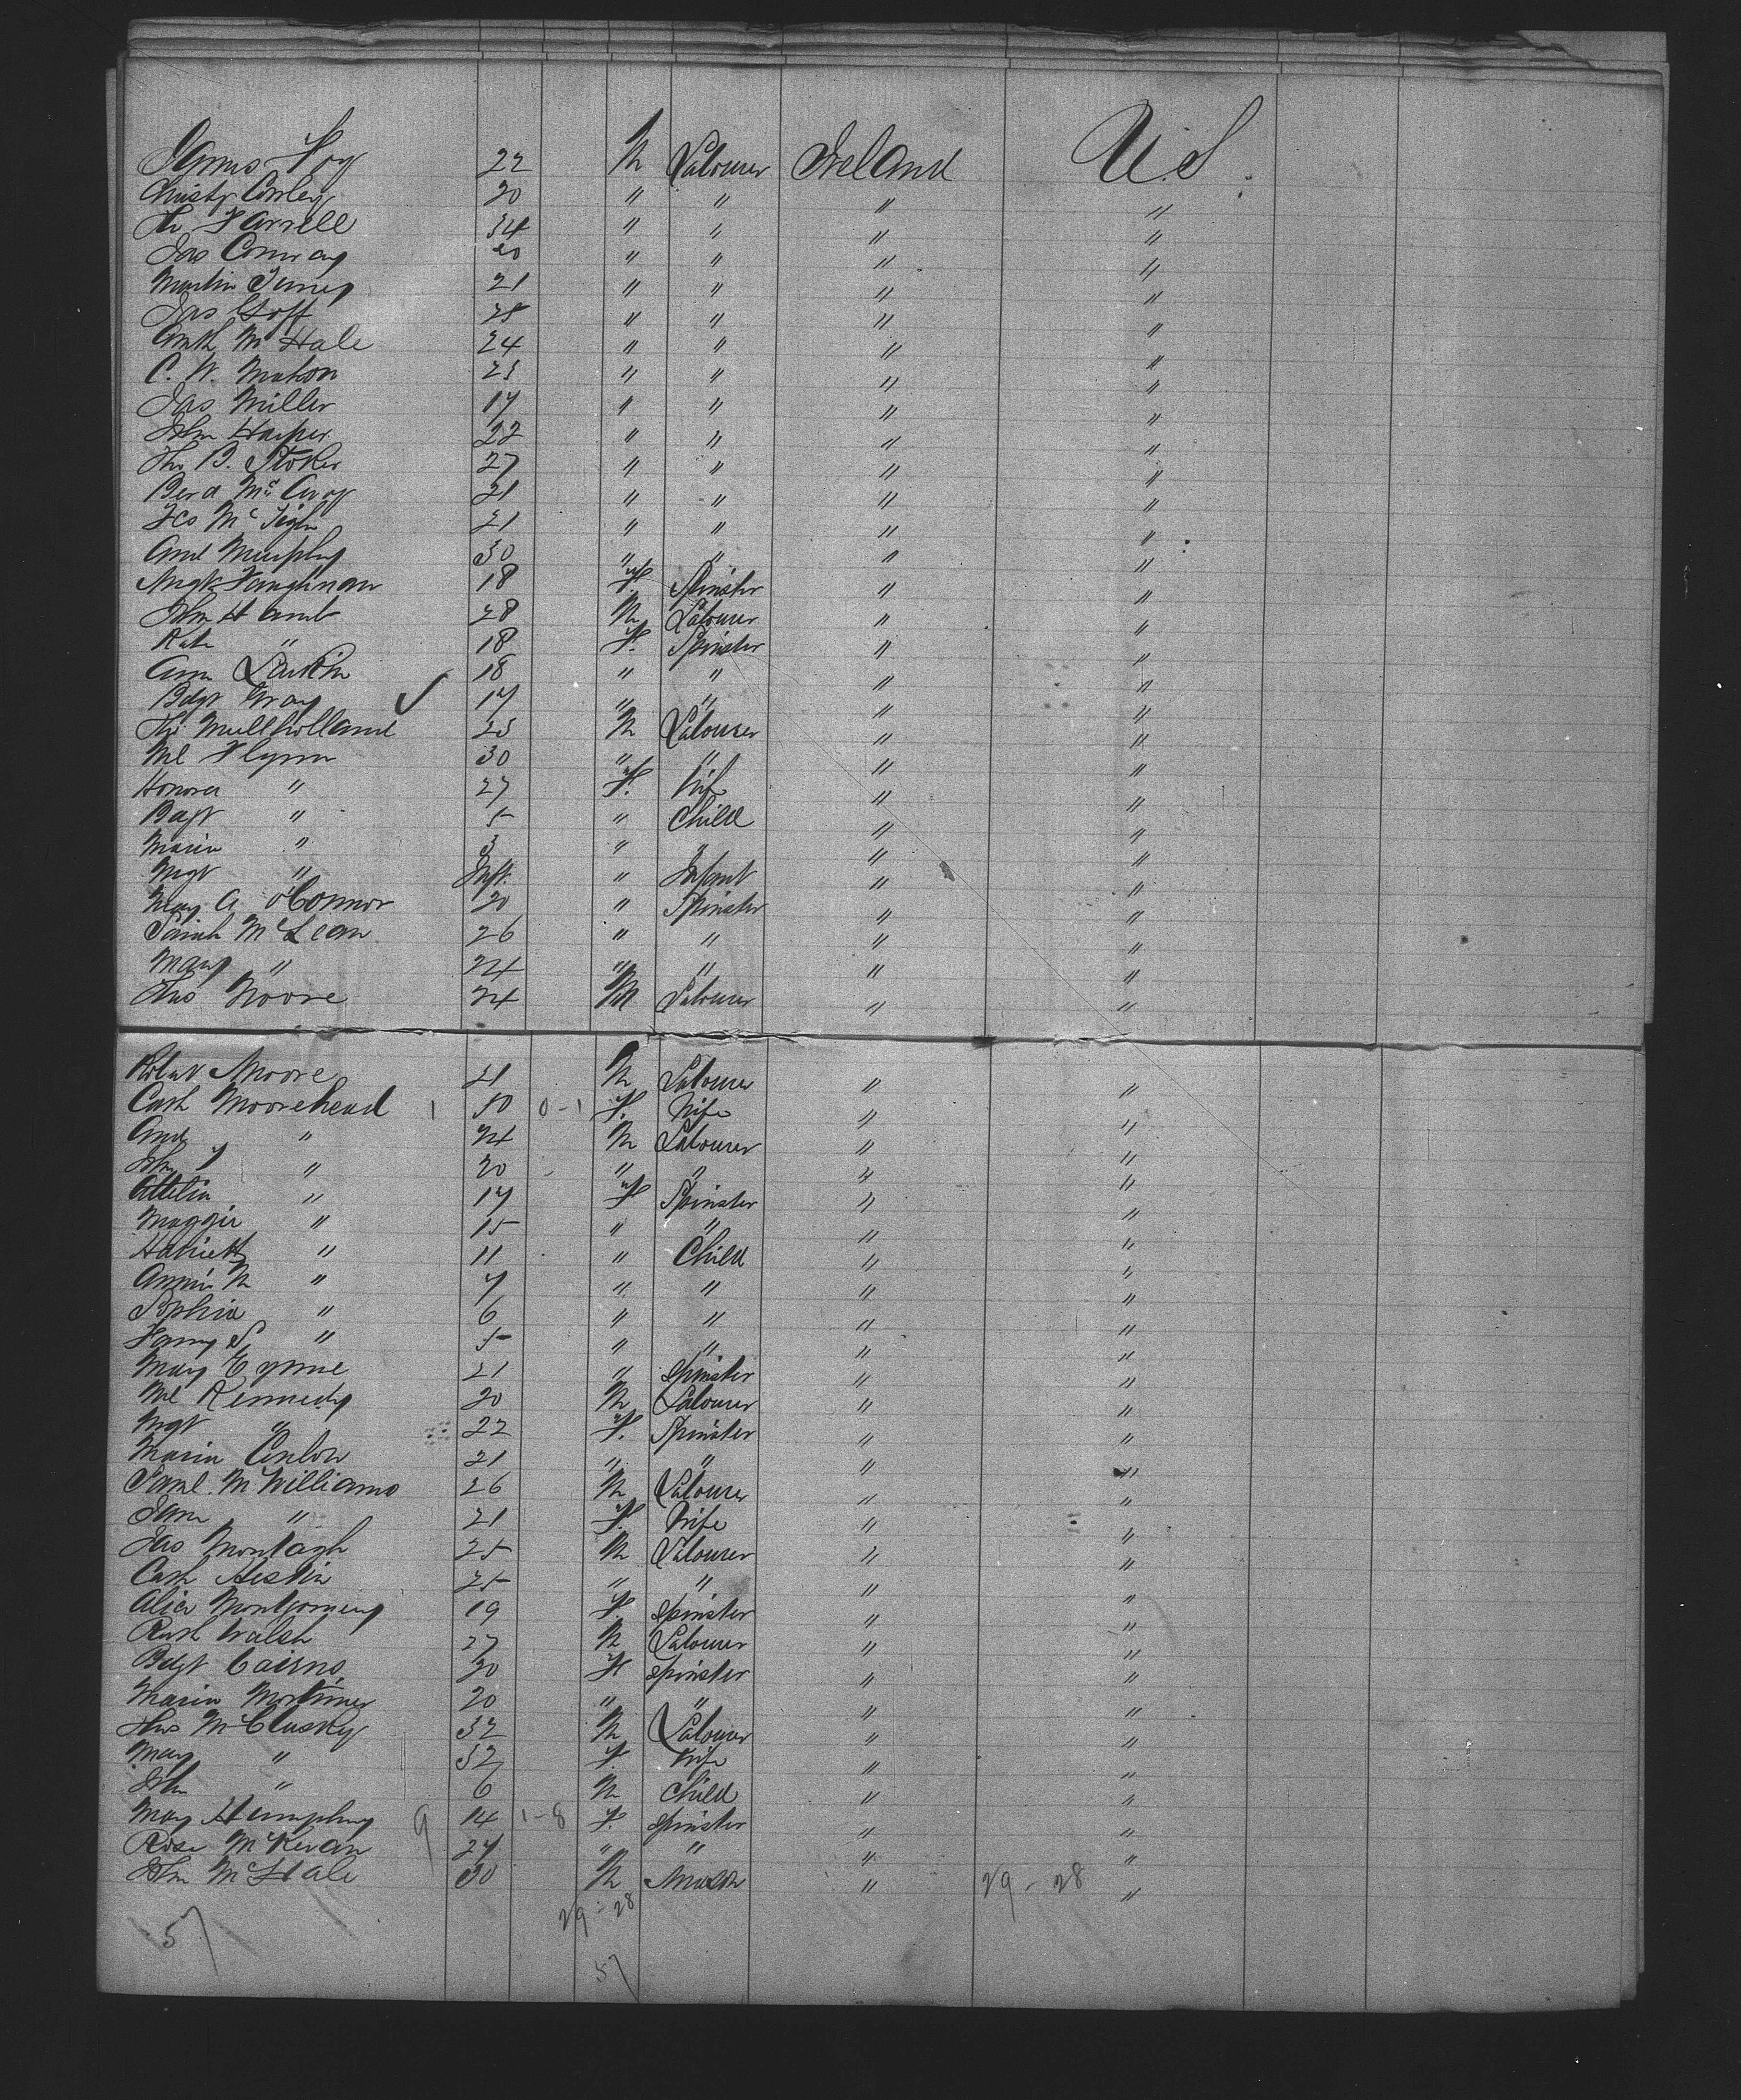 James Foy 22 M Labourer Ireland U.S.
Christy Conley 20 " " " "
Th Farrell 34 " " " "
Jas Conway 20 " " " "
Martin 21 " " " "
Jas Goff 28 " " " "
M Hale 24 " " " "
C. W. Mahon 23 " " " "
Jas Miller 17 " " " "
John Harper 22 " " " "
Ths B. Stoker 27 " " " "
Bera 21 " " " "
Mc Tighe 21 " " " "
And Murphy 30 " " " "
Mgt 18 F. Spinster " "
John Hamb 28 M Labourer " "
Kate " 18 F. Spinster " "
Ann Larkin 18 " " " "
Bdgt Gray 17 " " " "
Mullholland 23 M Labourer " "
Ml Flynn 30 " " " "
Honora " 27 F. Wife " "
Bdgt " 5 " Child " "
Maria " 3 " " " "
Mgt " Inft. " Infant " "
Mary A. O'Connor 20 " Spinster " "
Sarah McLean 26 " " " "
Mary " 24 " " " "
Thos Moore 24 M Labourer " "
Robert Moore 21 M Labourer " "
Cath Moorehead 1 50 0-1 F. Wife " "
And " 24 M Labourer " "
John " 20 " " " "
" 17 F Spinster " "
Maggie " 15 " " " "
Harriett " 11 " Child " "
Annie M " 7 " " " "
Sophia " 6 " " " "
Fanny S " 5 " " " "
Mary 21 " Spinster " "
Ml Kennedy 20 M Labourer " "
Mgt " 22 F. Spinster " "
Maria 21 " " " "
Saml. McWilliams 26 M Labourer " "
Jane " 21 F. Wife " "
Jas Montagh 25 M Labourer " "
Cath 25 " " " "
Alice Montgomery 19 F. Spinster " "
Walsh 27 M Labourer " "
Bdgt Cairns 20 F Spinster " "
Maria Mortimer 20 " " " "
Thos McClusky 32 M Labourer " "
Mary " 32 F. Wife " "
John " 6 M Child " "
Mary Humphrey 9 14 1-8 F. Spinster " "
Rose McKevan 27 " " " "
John McHale 30 M " "
29 - 28
29 - 28
57
57